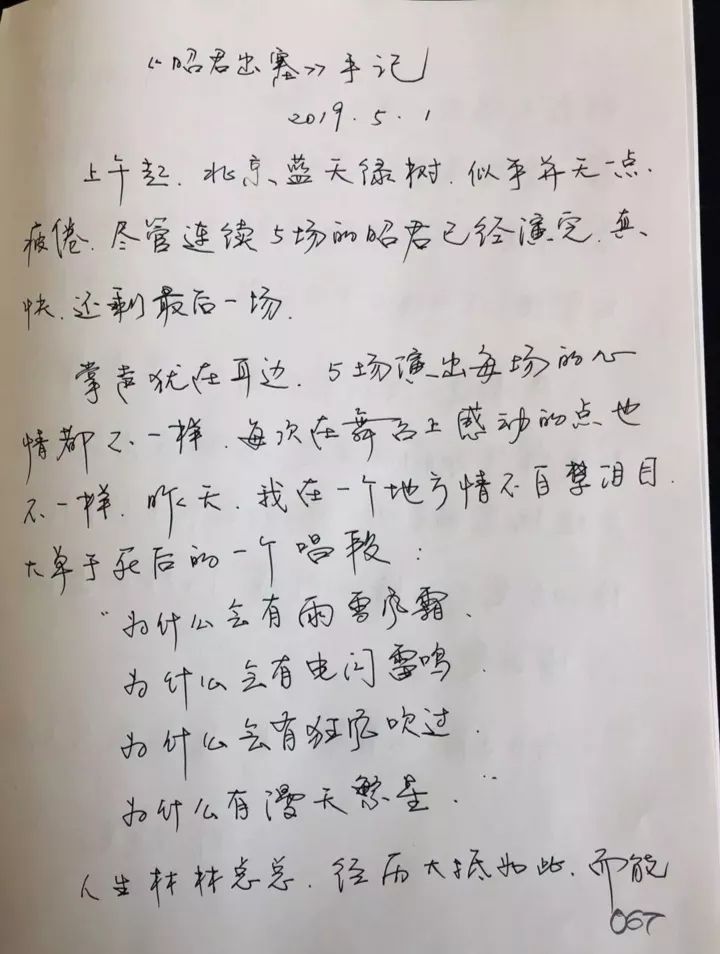 《昭君出塞》手记
2019.5.1
上午起.北京、蓝天绿树.似乎并无一点.
疲倦.尽管连续5场的昭君已经演完.真、
快.还剩最后一场.
掌声犹在耳边.5场演出每场的心
情都不一样.每次在舞台上感动的点也
不一样.昨天.我在一个地方情不自禁泪目.
大单于死后的一个唱段:
“为什么会有雨雪风霜.
为什么会有电闪雷鸣.
为什么会有狂风吹过.
为什么有漫天繁星.”
人生林林总总.经历大抵如此.而能
067